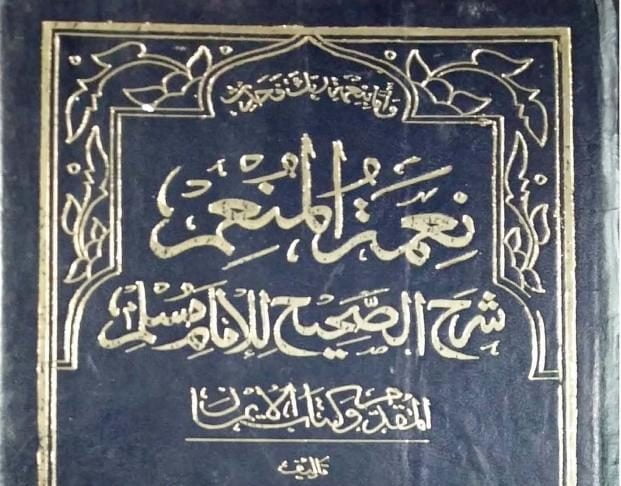 وأما بنعمة ربك فحدث
نعمة المنعم
شرح الصحيح للإمام مسلم
المقدمة وكتاب الإيمان
تأليف